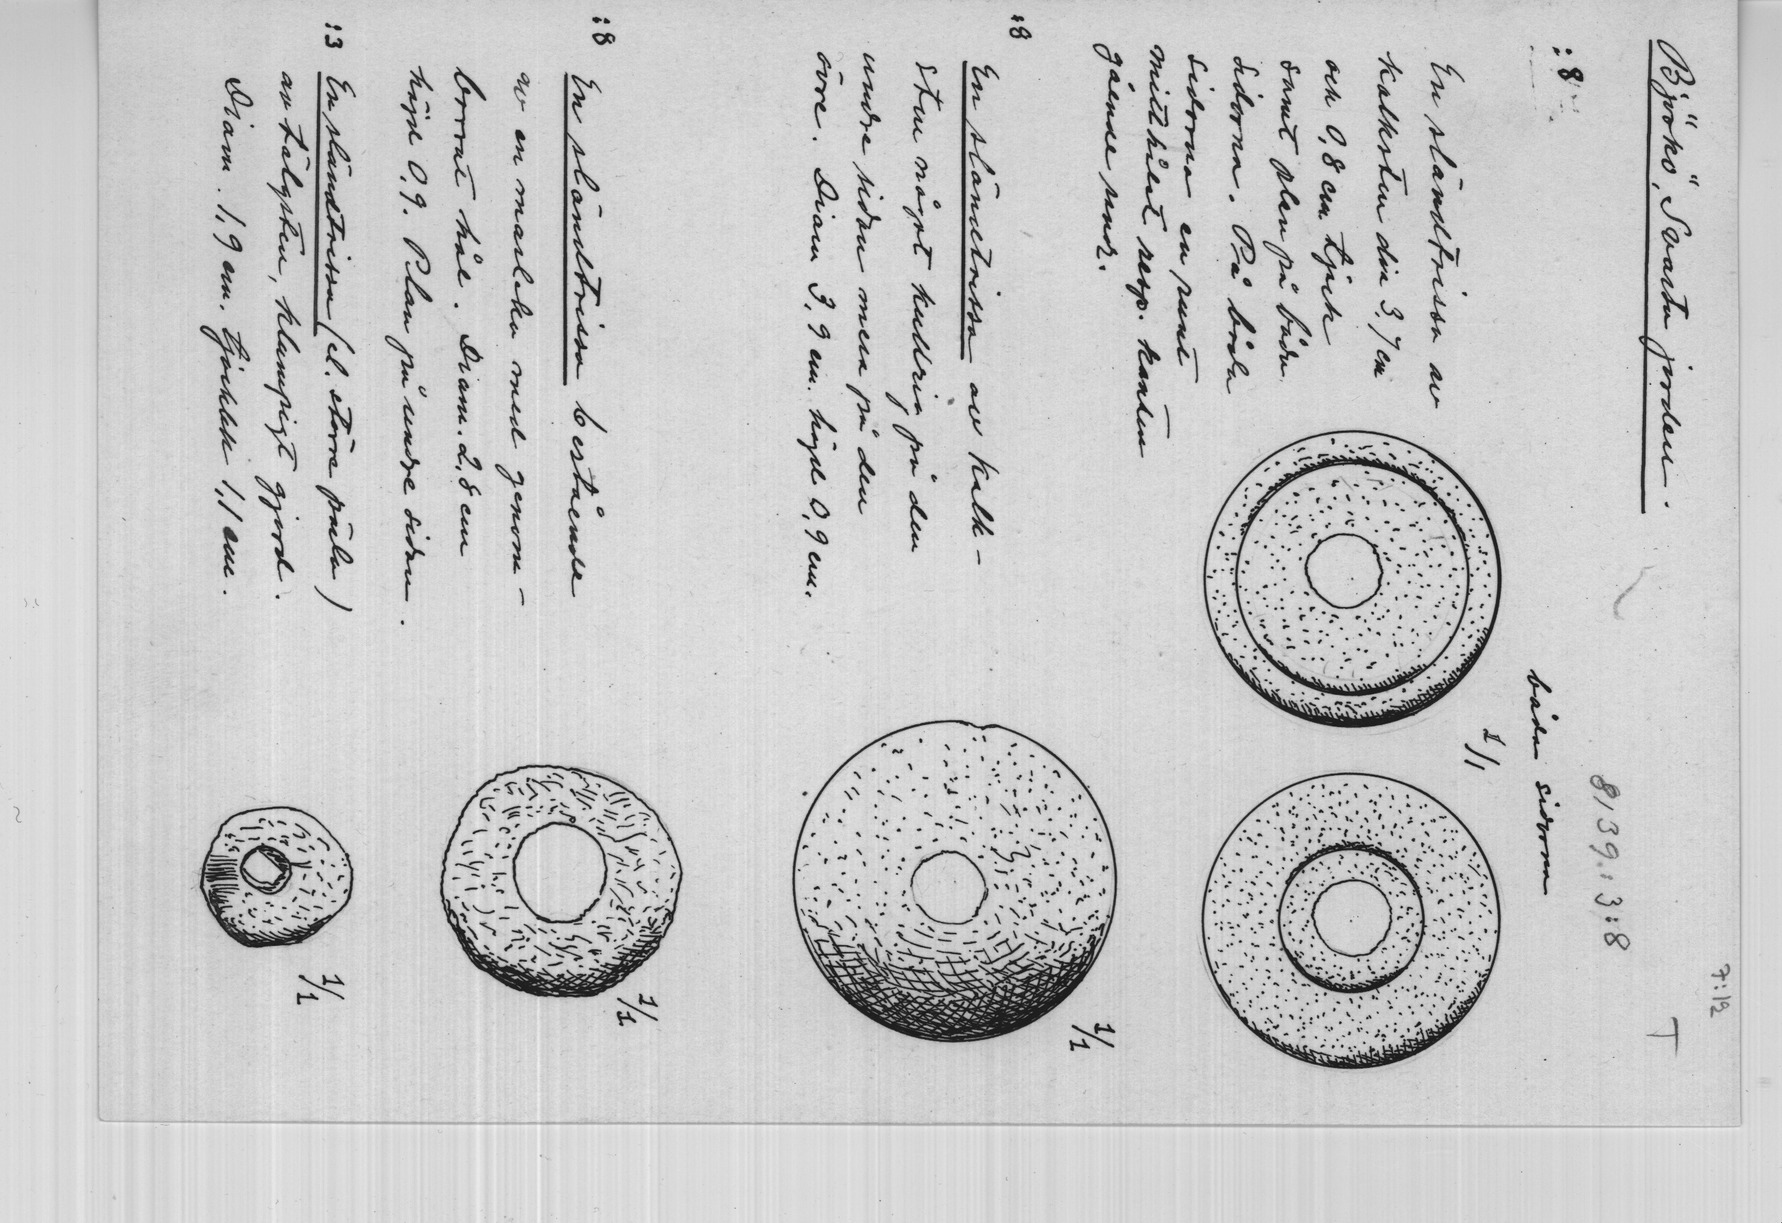 7:12
T
Björkö, "Svarta jorden".
8139:3:8
:8
båda sidorna
En sländtrissa av
1/1
kalksten dia 3,7 cm
och 0,8 cm tjock
samt plan på båda
sidorna. På båda
sidorna en runt
mitthålet resp. kanten
gående rund.
:8
1/1
En sländtrissa av kalk-
sten något kullrig på den
undre sidan mera på den
övre. Diam 3,9 cm. höjd 0,9 cm.
:8
1/1
En sländtrissa bestående
av en masleka med genom-
borrat hål. Diam. 2,8 cm
höjd 0,9. Plan på undre sidan.
:3
1/1
En sländtrissa (el. större pärla)
av täljsten, klumpigt gjord.
Diam. 1,9 cm. tjocklek 1,1 cm.